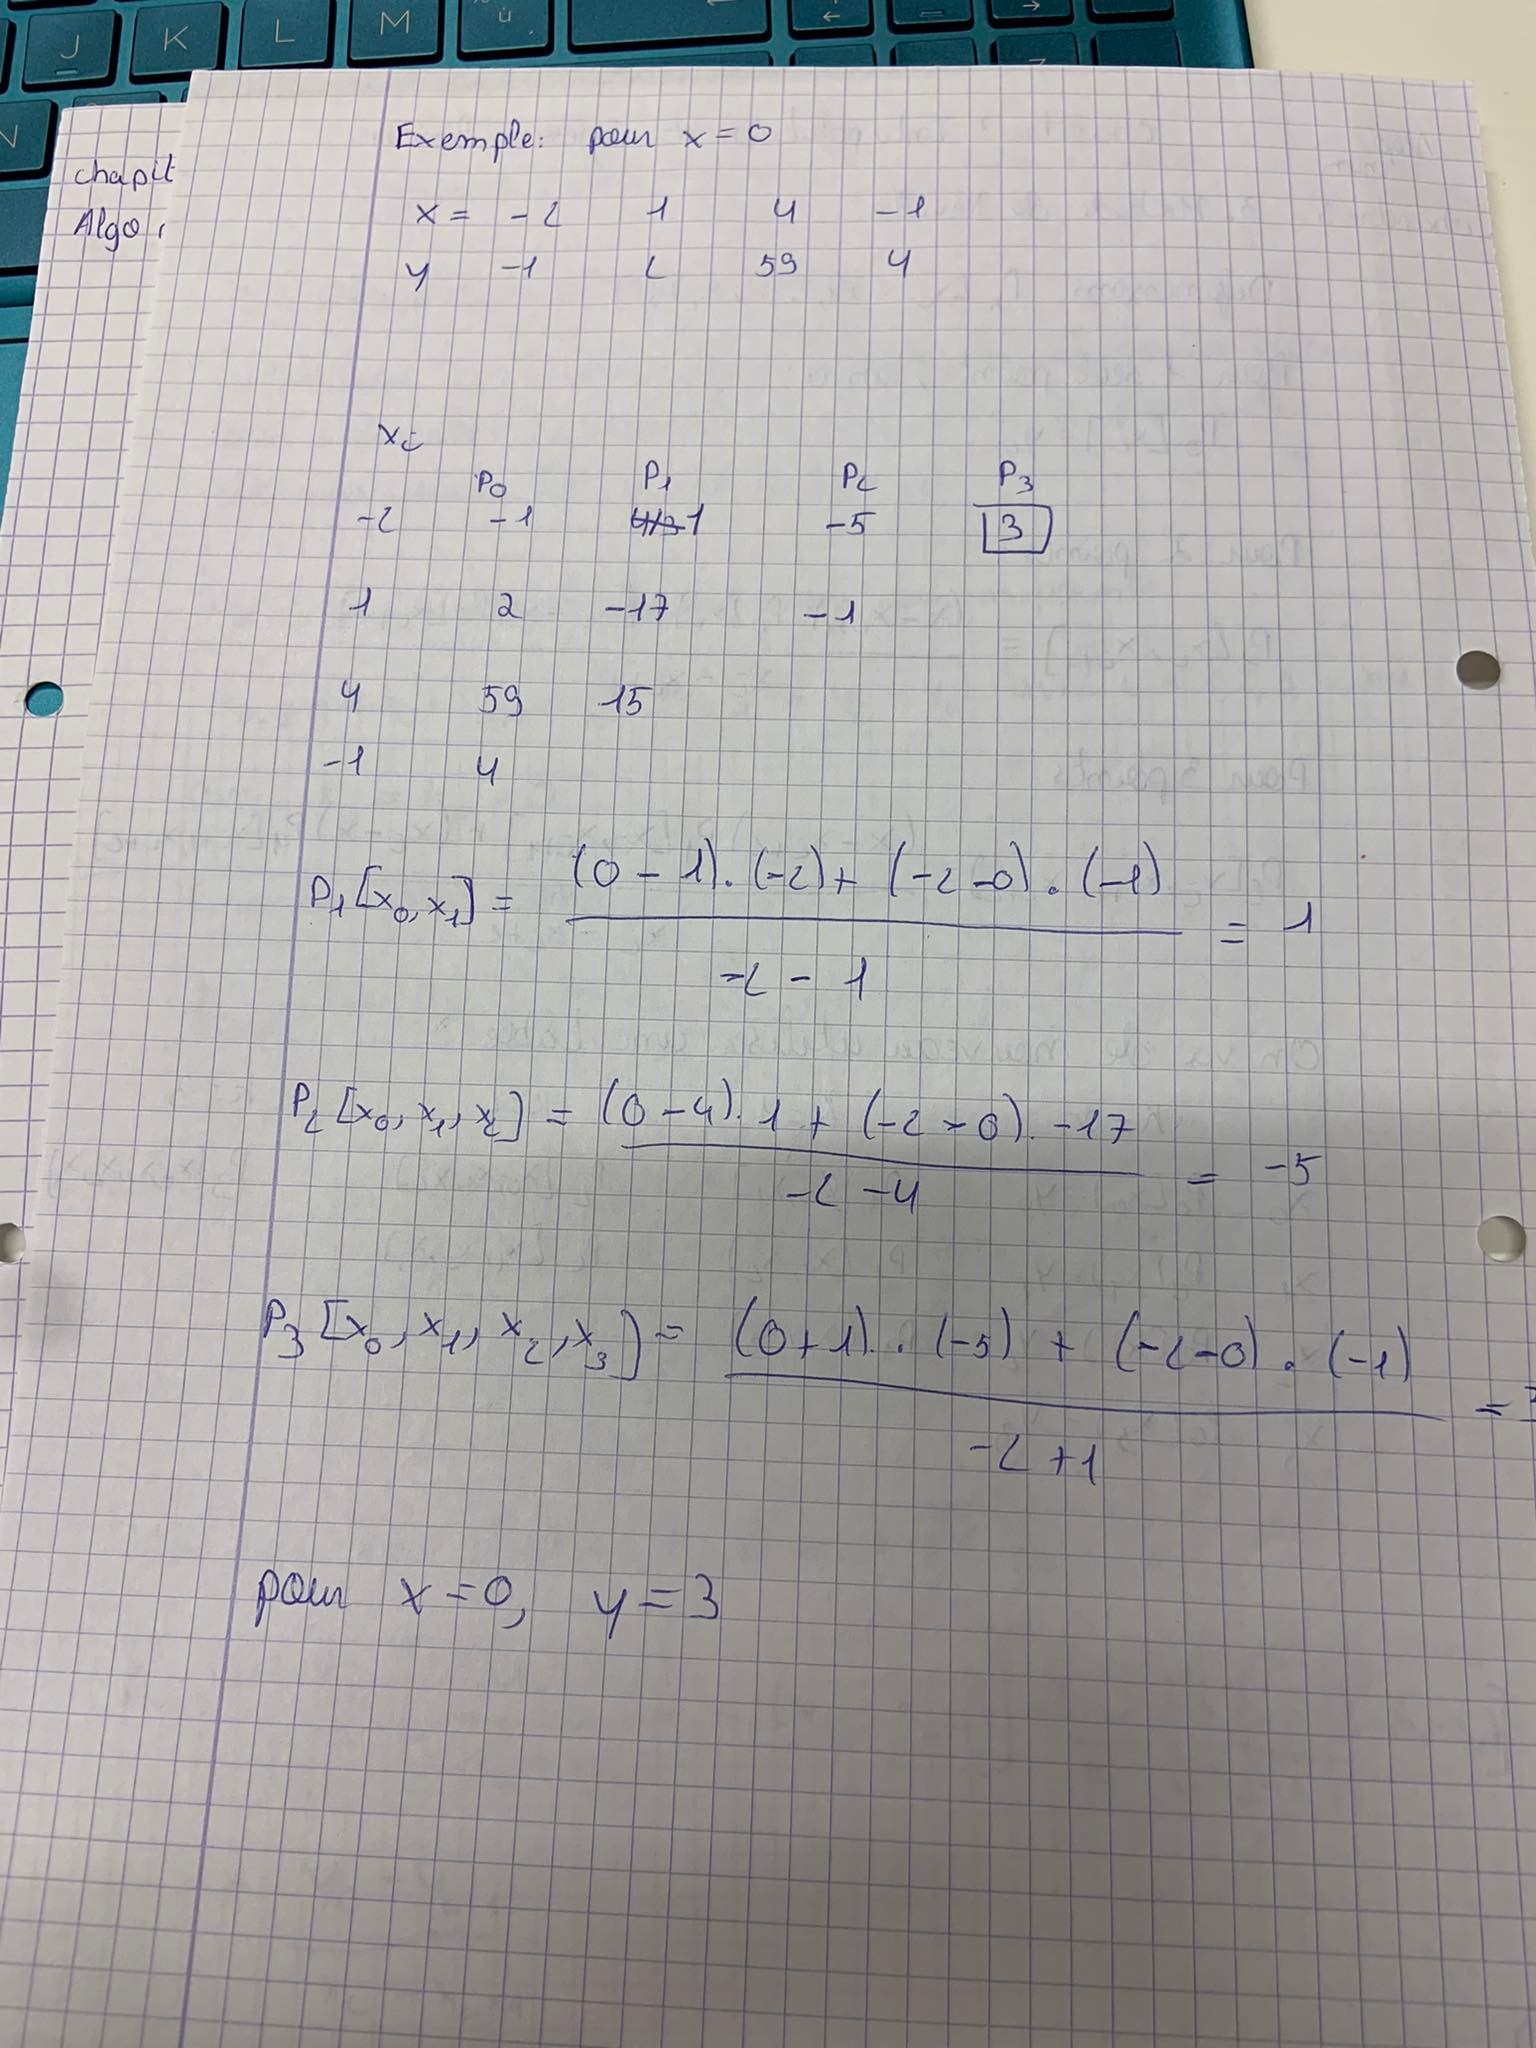 J K L M ù
N
chapit
Algo
Exemple: pour x = 0
x = -2 1 4 -1
y -1 2 59 4
xi
P0 P1 P2 P3
-2 -1 1 -5 3
1 2 -17 -1
4 59 15
-1 4
P1[x0, x1] = (0 - 1) . (-2) + (-2 - 0) . (-1) / -2 - 1 = 1
P2[x0, x1, x2] = (0 - 4) . 1 + (-2 - 0) . -17 / -2 - 4 = -5
P3[x0, x1, x2, x3] = (0 + 1) . (-5) + (-2 - 0) . (-1) / -2 + 1 = 3
pour x = 0, y = 3